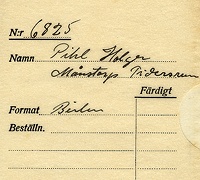 N:r 6825
Namn Pihl Holger
Månstorps
Färdigt
Format
Beställn.